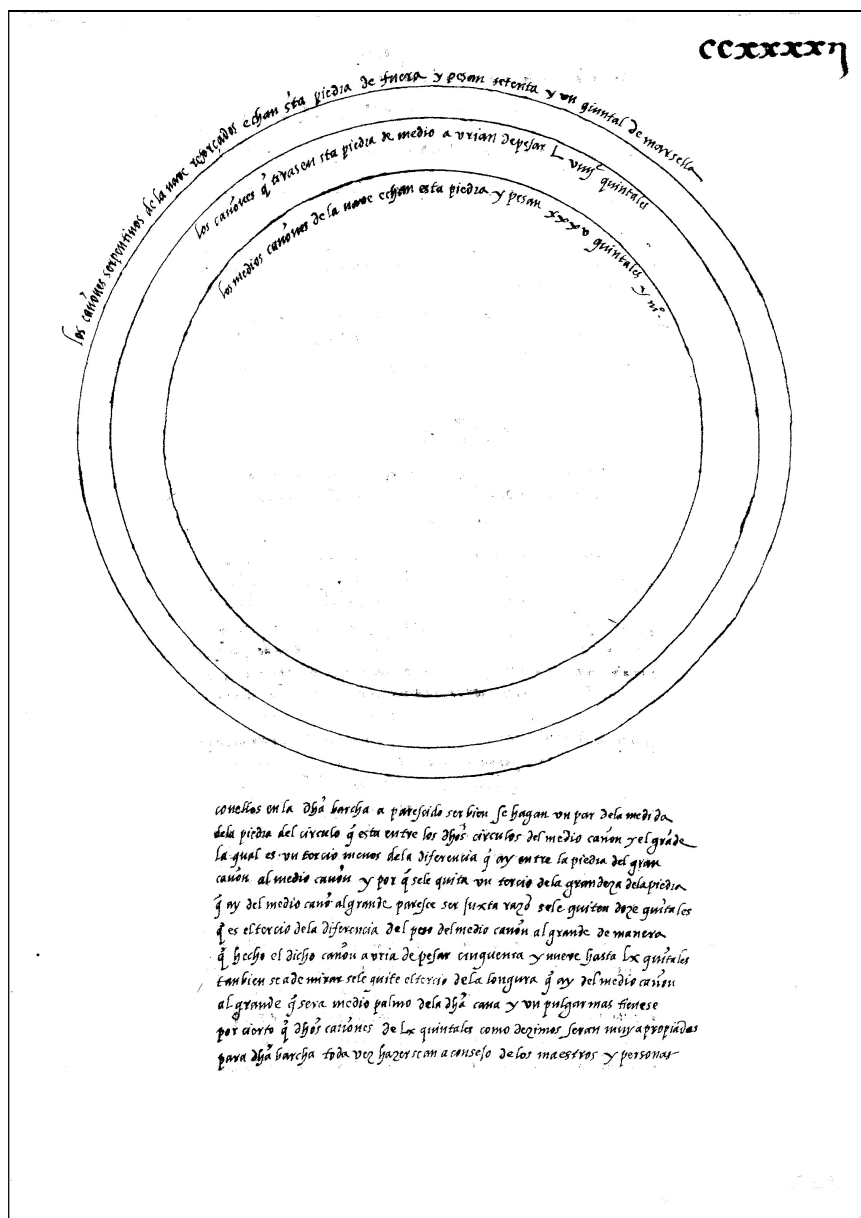 ccxxxxij
los cañones serpentinos de la nave reforçados echan sta piedra de fuera y pesan setenta y un quintal de marsella
los cañones q̃ tirasen sta piedra de medio a vrian de pesar L viiijº quintales
los medios cañones de la nave echan esta piedra y pesan xxxv quintales y mº.
conellos en la dha barcha a parescido ser bien se hagan vn par dela medida
dela piedra del circulo q̃ esta entre los dhos circulos del medio cañon y el grãde
la qual es vn tercio menos dela diferencia q̃ ay entre la piedra del gran
cañon al medio cañon y por q̃ sele quita vn tercio dela grandeza dela piedra
q̃ ay del medio cañō al grande paresce ser juxta razō sele quiten doze quītales
q̃ es el tercio dela diferencia del peso del medio cañon al grande de manera
q̃ hecho el dicho cañon avria de pesar cinquenta y nueve hasta lx quītales
tanbien se a de mirar sele quite el tercio de la longura q̃ ay del medio cañon
al grande q̃ sera medio palmo dela dha cana y vn pulgar mas tienese
por cierto q̃ dhos cañones de lx quintales como dezimos seran muy apropiados
para dha barcha toda vez hazerse an a consejo de los maestros y personas